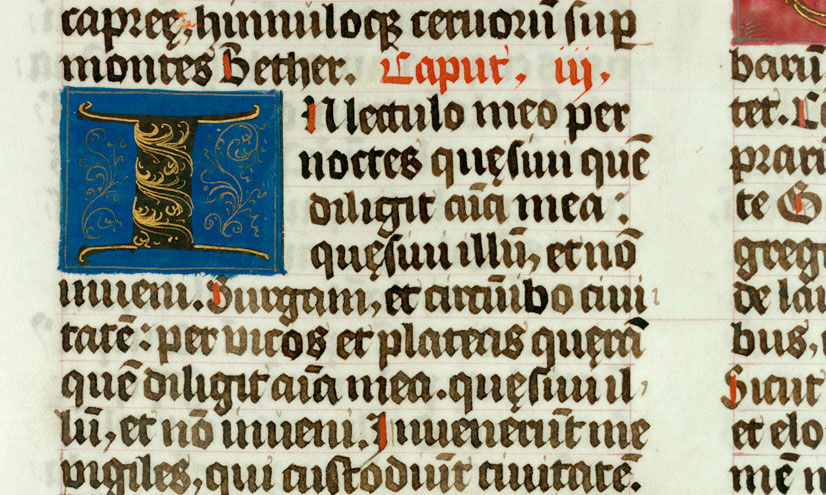 capreę, hinnuloqꝫ ceruorū suꝑ
montes Bether. Caput. iij.
IN lectulo meo per
noctes quęsiui quē
diligit aīa mea:
quęsiui illū, et nō
inueni. Surgam, et circūibo ciui
tatē: per vicos et plateas quęrā
quē diligit aīa mea. quęsiui il
lū, et nō inueni. Inuenerūt me
vigiles, qui custodiūt ciuitatē.
barū
tet. Ca
prarū
te G
grega
de lau
bus,
Sicut
et elo
mē n